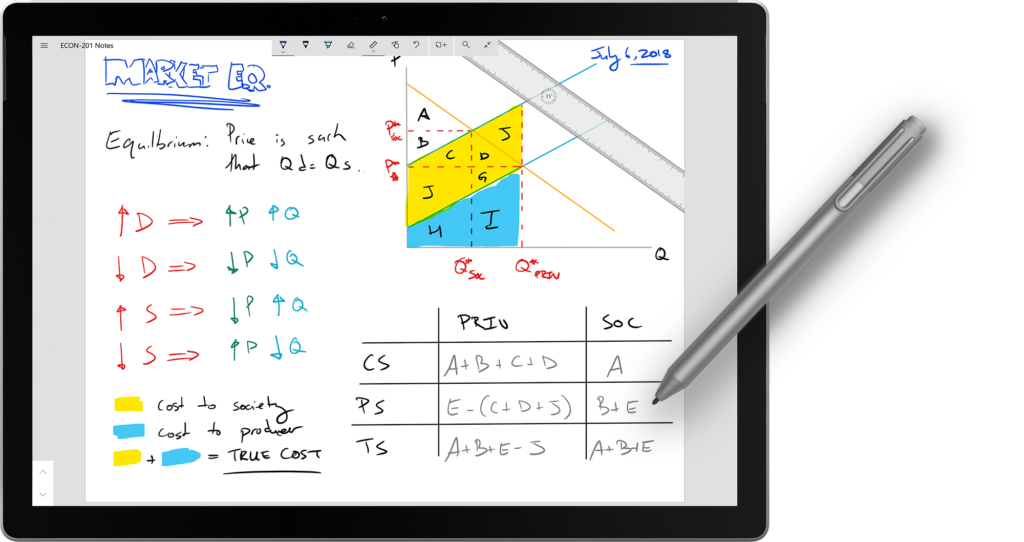 ECON-201 Notes
July 6, 2018
MARKET EQ.
Equilibrium: Price is such
that Qd = Qs.
↑ D ⇒ ↑P ↑Q
↓ D ⇒ ↓P ↓Q
↑ S ⇒ ↓P ↑Q
↓ S ⇒ ↑P ↓Q
Cost to society
Cost to producer
+ = TRUE COST
A
P* soc
B
J
C
D
G
J
H
I
35°
Q
Q* Soc
Q* PRIV
PRIV SOC
CS A+B+C+D A
PS E-(C+D+J) B+E
TS A+B+E-J A+B+E